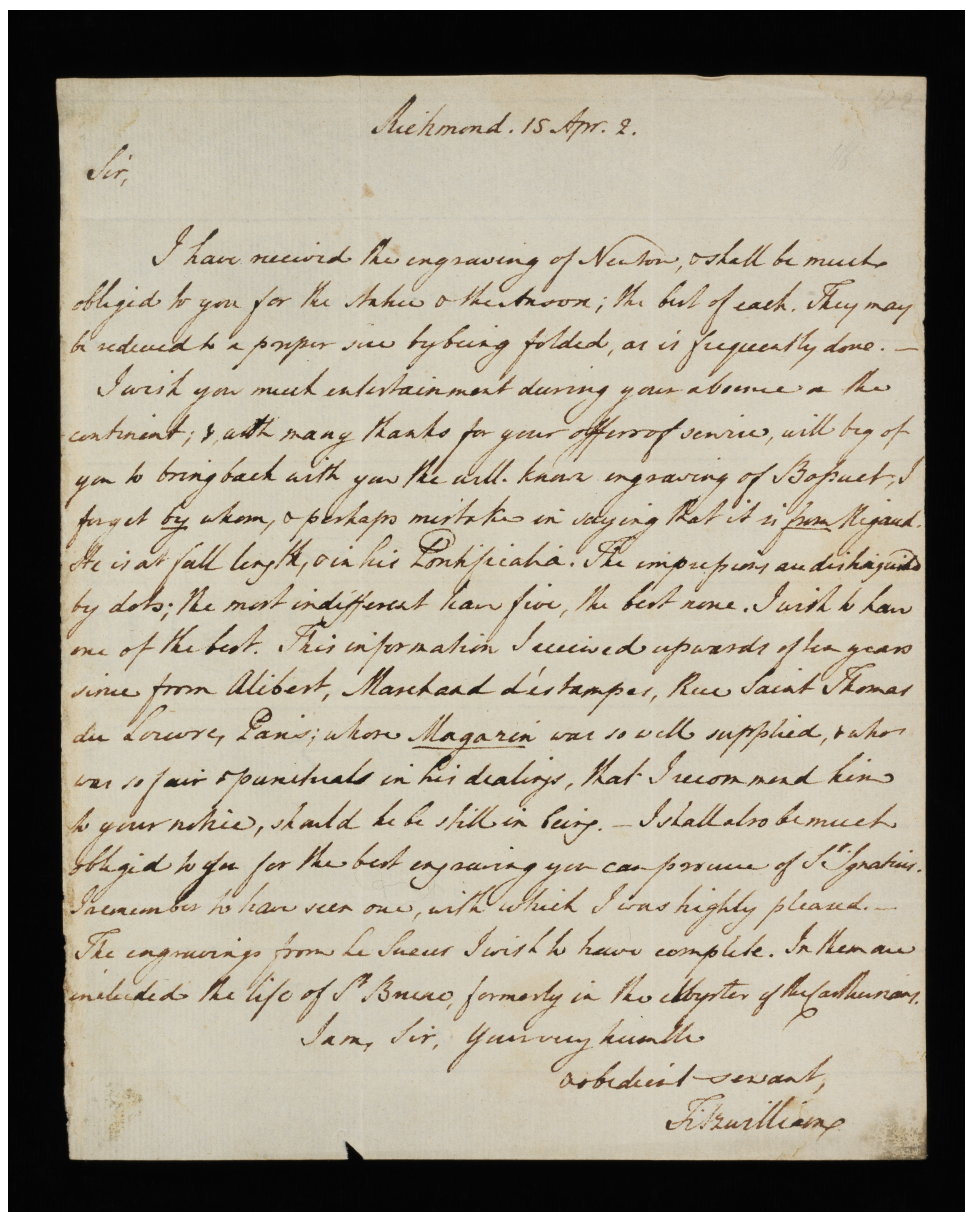 Richmond. 15 Apr. 2.
Sir,
I have received the engraving of Newton, & shall be much
obliged to you for the & the Anson; the best of each. They may
be reduced to a proper size by being folded, as is frequently done. —
I wish you much entertainment during your absence on the
continent; &, with many thanks for your offer of service, will beg of
you to bring back with you the well-known engraving of Bossuet, I
forget by whom, & perhaps mistake in saying that it is from Rigaud.
He is at full length, & in his Pontificalia. The impressions are distinguished
by dots; the most indifferent have five, the best none. I wish to have
one of the best. This information I received upwards of ten years
since from Alibert, Marchand d'estampes, Rue Saint Thomas
du Louvre, Paris; whose Magazin was so well supplied, & who
was so fair & punctual in his dealings, that I recommend him
to your notice, should he be still in being. — I shall also be much
obliged to you for the best engraving you can procure of St. Ignatius.
I remember to have seen one, with which I was highly pleased. —
The engravings from Le Sueur I wish to have complete. In them are
included the life of St. Bruno, formerly in the cloyster of the Carthusians.
I am, Sir, your very humble
& obedient servant,
Fitzwilliam